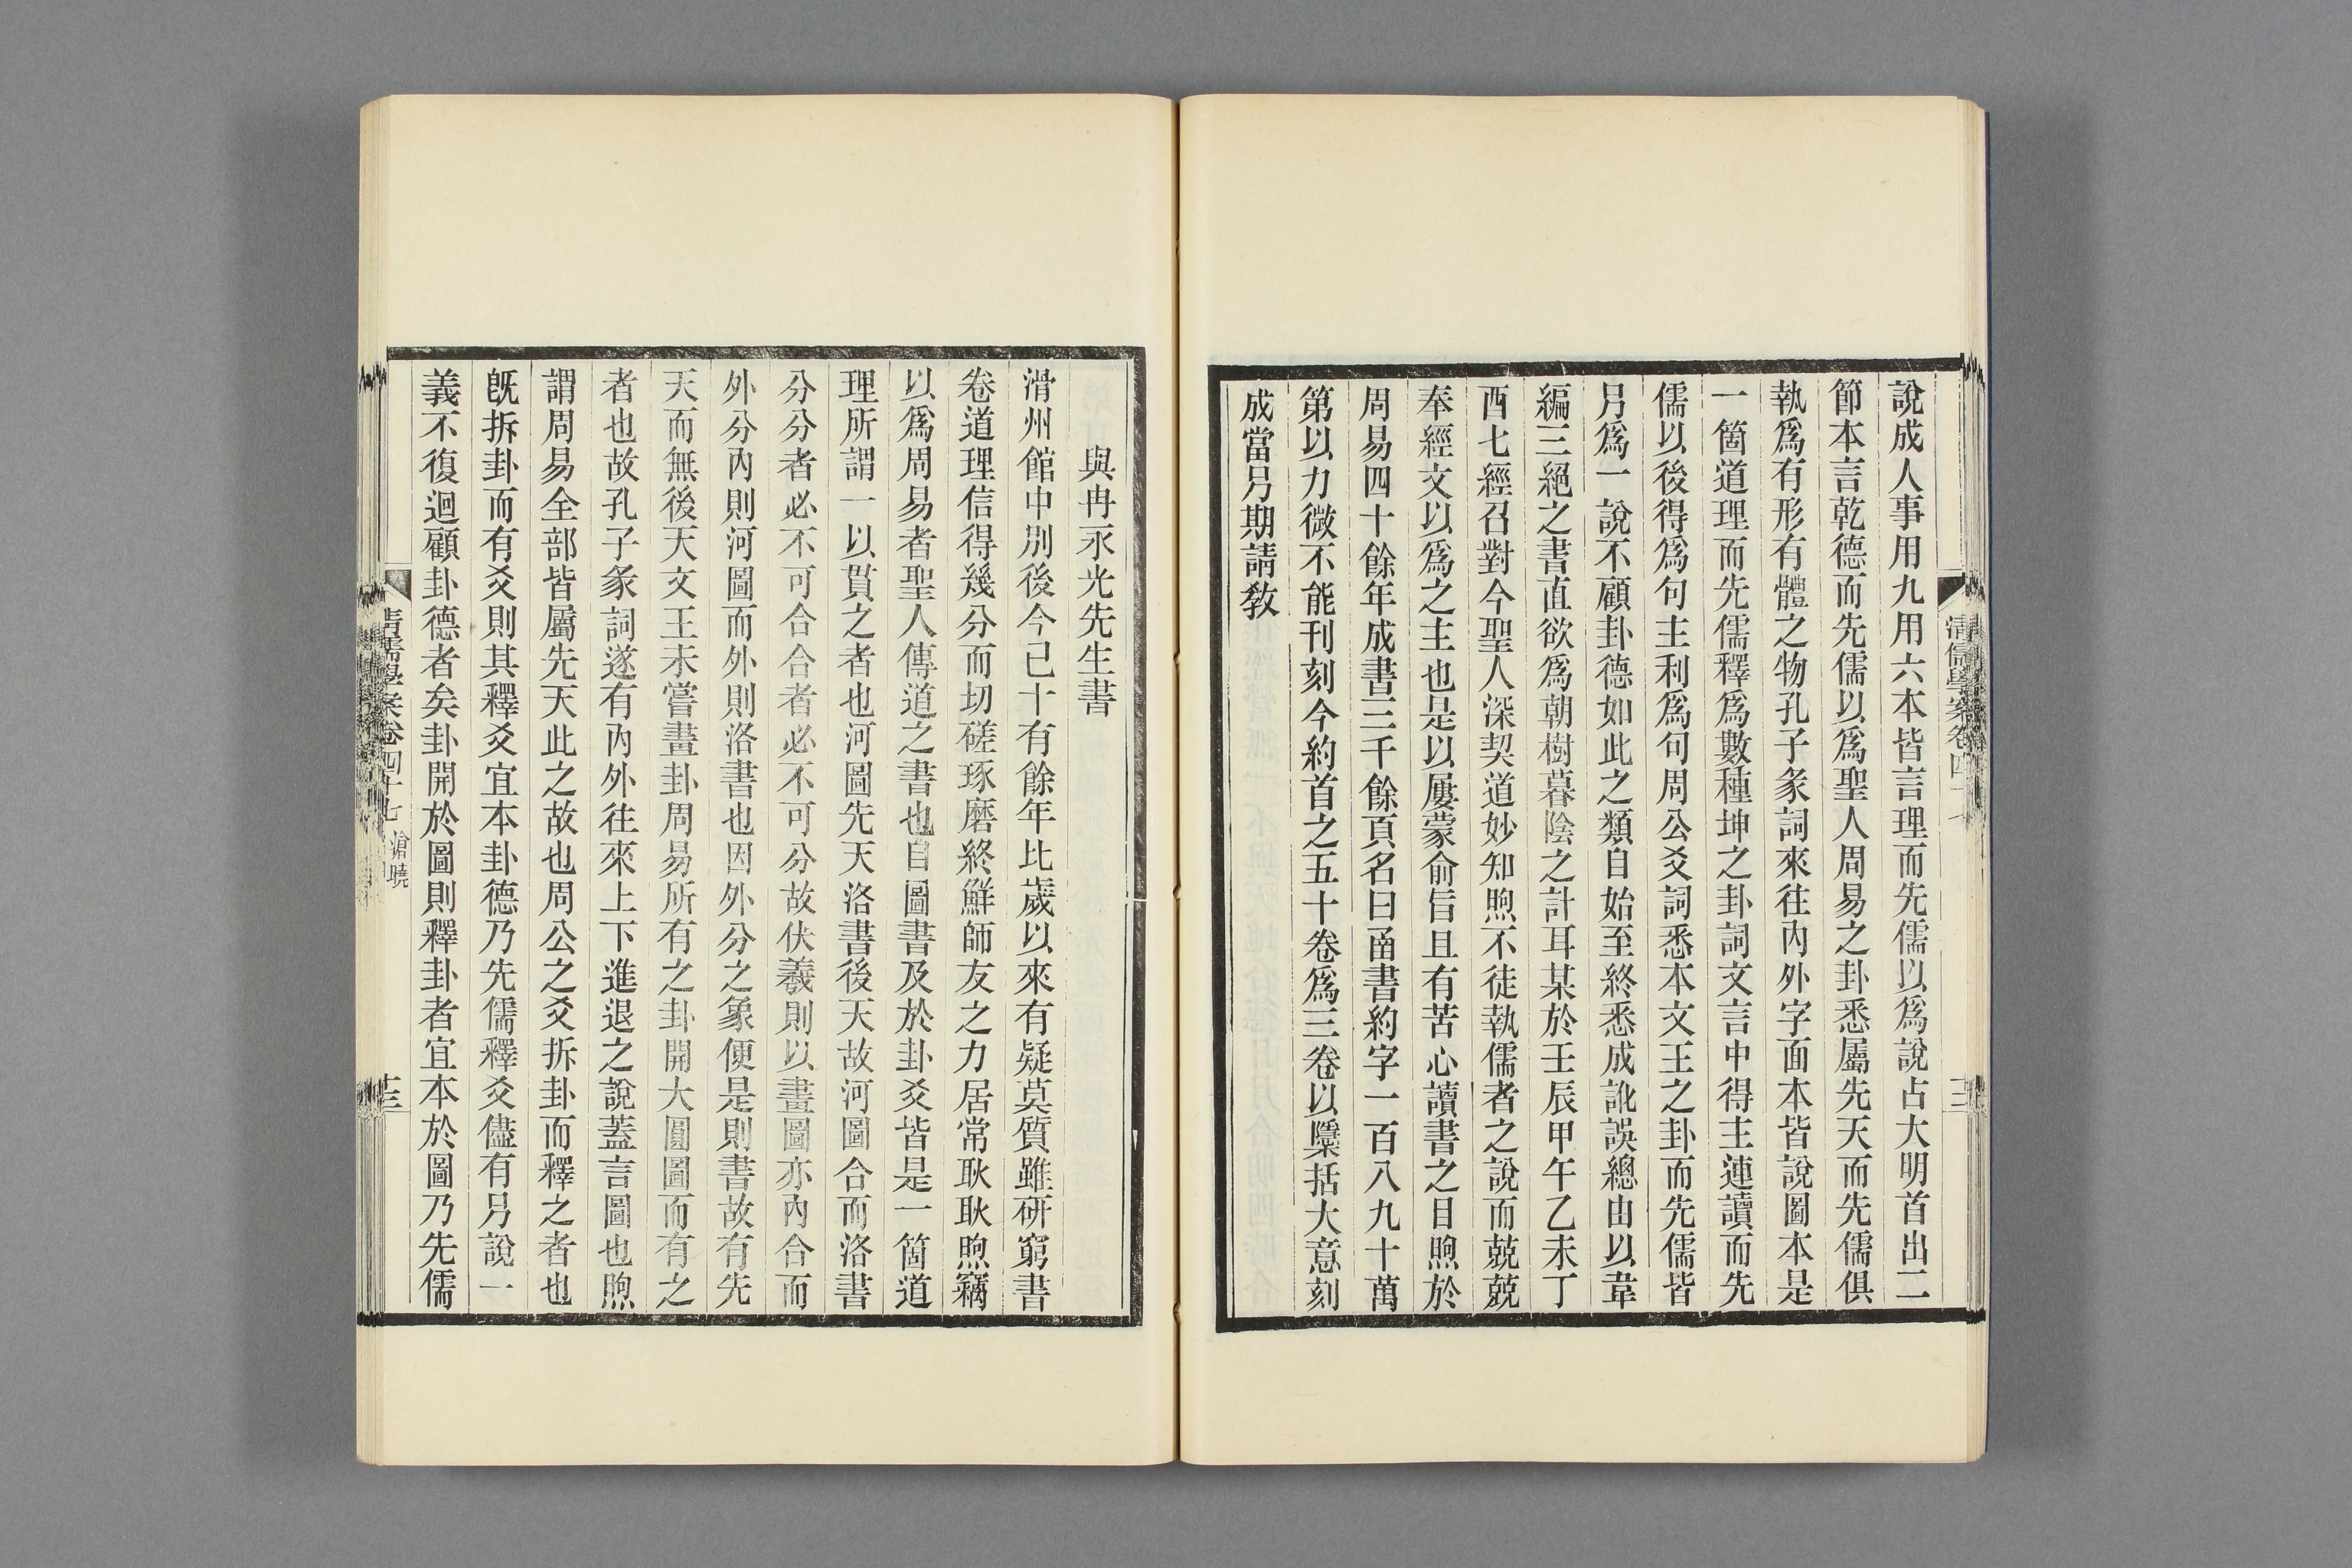 說成人事用九用六本皆言理而先儒以爲說占大明首出二
節本言乾德而先儒以爲聖人周易之卦悉屬先天而先儒俱
執爲有形有體之物孔子彖詞來往內外字面本皆說圖本是
一箇道理而先儒釋爲數種坤之卦詞文言中得主連讀而先
儒以後得爲句主利爲句周公爻詞悉本文王之卦而先儒皆
另爲一說不顧卦德如此之類自始至終悉成訛誤總由以韋
編三絕之書直欲爲朝樹暮陰之計耳某於壬辰甲午乙未丁
酉七經召對今聖人深契道妙知煦不徒執儒者之說而兢兢
奉經文以爲之主也是以屢蒙俞旨且有苦心讀書之目煦於
周易四十餘年成書三千餘頁名曰函書約字一百八九十萬
第以力微不能刊刻今約首之五十卷爲三卷以檃括大意刻
成當另期請敎
清儒學案卷四十七
與冉永光先生書
滑州館中別後今已十有餘年比歲以來有疑莫質雖研窮書
卷道理信得幾分而切磋琢磨終鮮師友之力居常耿耿煦竊
以爲周易者聖人傳道之書也自圖書及於卦爻皆是一箇道
理所謂一以貫之者也河圖先天洛書後天故河圖合而洛書
分分者必不可合合者必不可分故伏羲則以畫圖亦內合而
外分內則河圖而外則洛書也因外分之象便是則書故有先
天而無後天文王未嘗畫卦周易所有之卦開大圓圖而有之
者也故孔子彖詞遂有內外往來上下進退之說蓋言圖也煦
謂周易全部皆屬先天此之故也周公之爻拆卦而釋之者也
旣拆卦而有爻則其釋爻宜本卦德乃先儒釋爻儘有另說一
義不復迴顧卦德者矣卦開於圖則釋卦者宜本於圖乃先儒
清儒學案卷四十七 滄曉